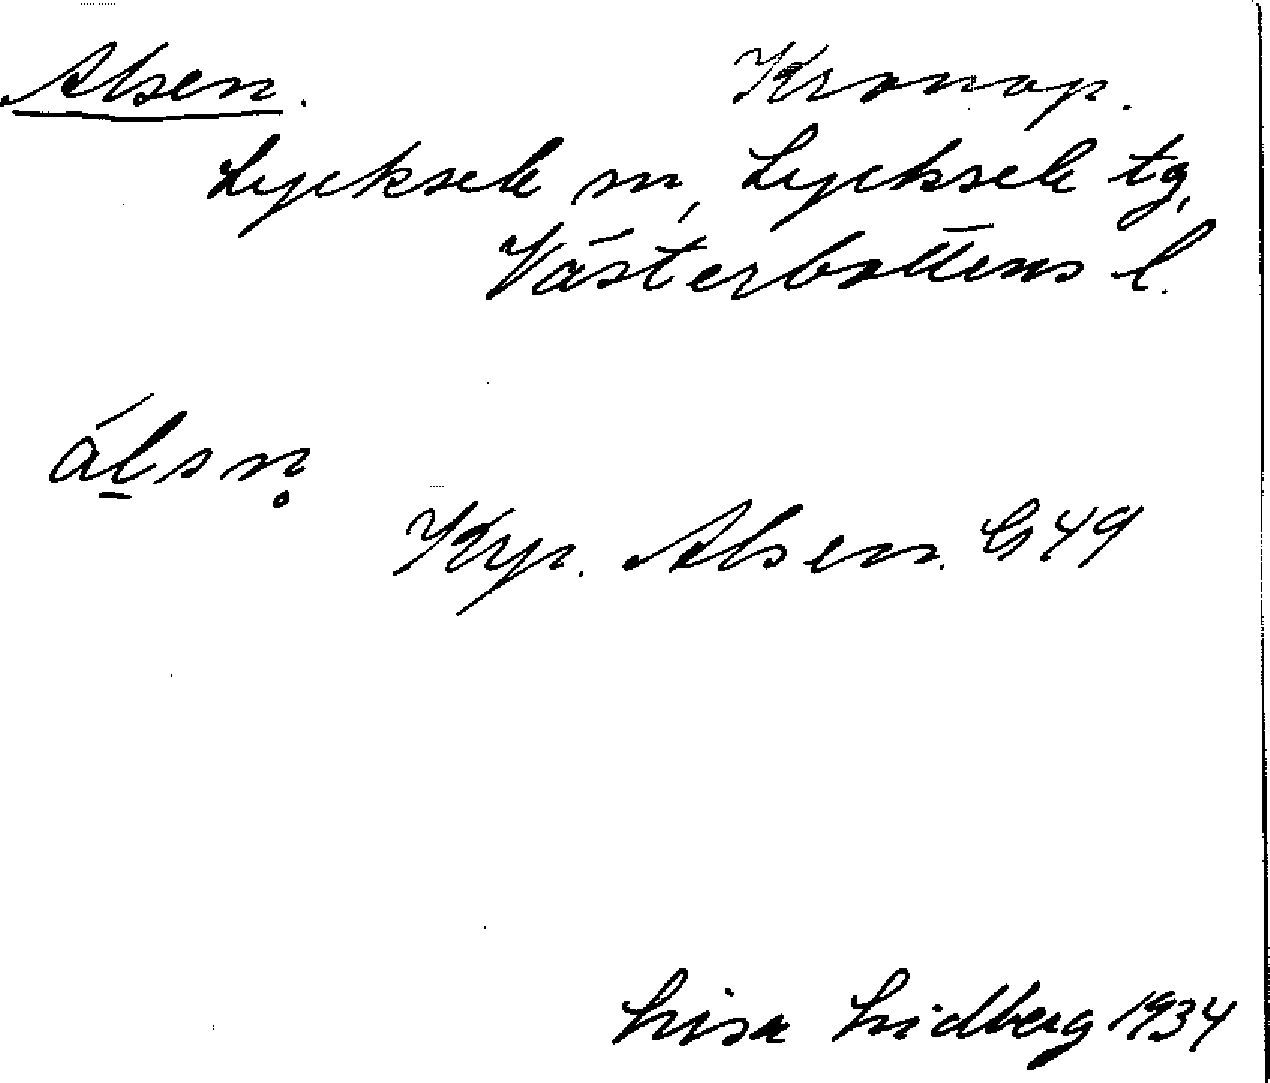 Alsen. Kronop.
Lycksele sn, Lycksele tg,
Västerbottens l.
álsn̥
Krp. Alsen. G49
Lisa Lidberg 1934